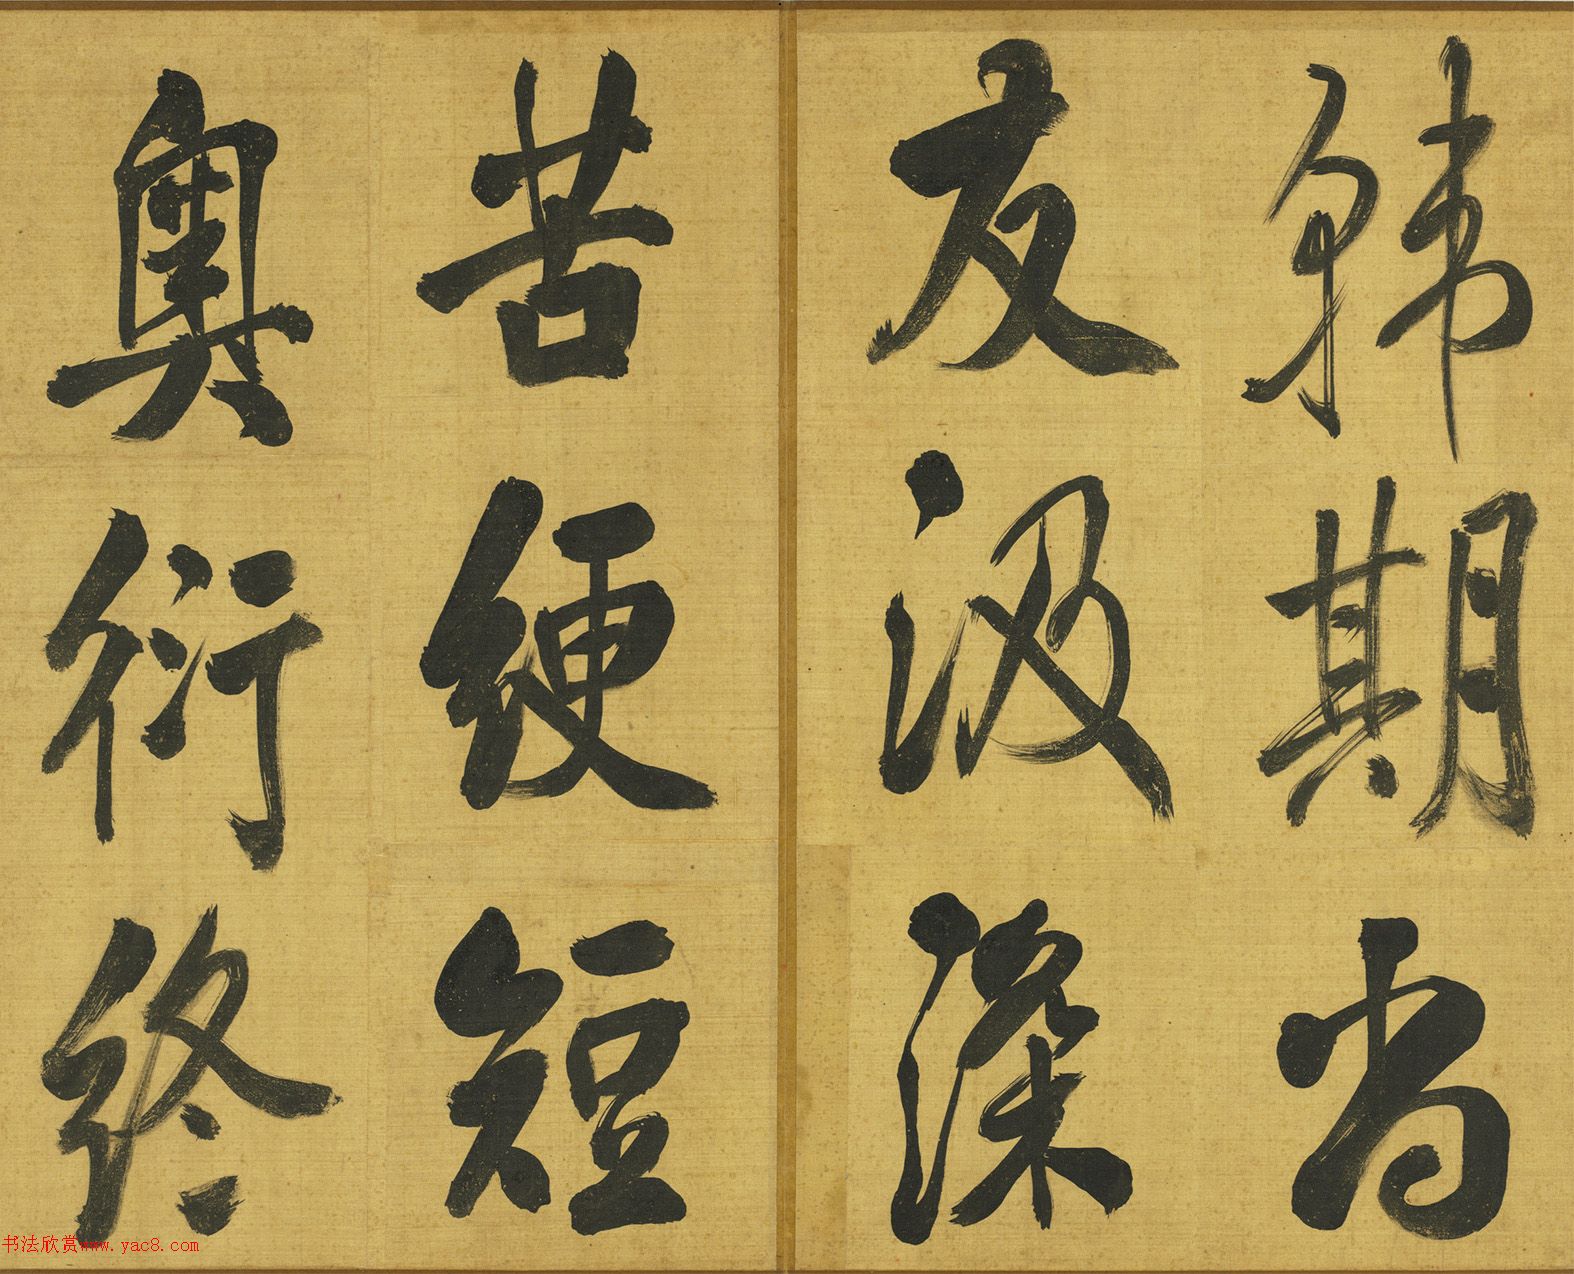 韩期尚
友汲深
苦绠短
奥衍终
书法欣赏www.yac8.com